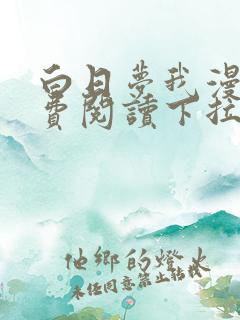 白日夢我漫
費閱讀下拉
他鄉的燈火
未經同意禁止轉載